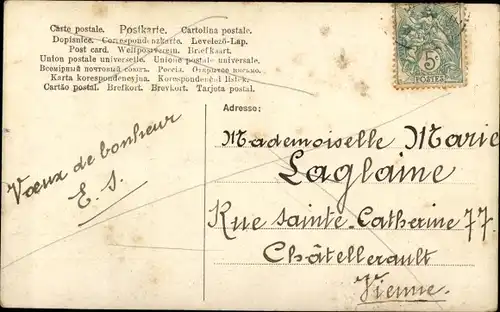 Carte postale. Postkarte. Cartolina postale.
Dopisnice. Correspondenzkarte. Levelező-Lap.
Post card. Weltpostverein. Briefkaart.
Union postale universelle. Unione postale universale.
Всемірный почтовый союзъ. Россія. Открытое письмо.
Karta korespondencyjna. Korespondenční lístek.
Cartão postal. Brefkort. Brevkort. Tarjeta postal.
5
POSTES
Adresse:
Vœux de bonheur
E. S.
Mademoiselle Marie
Laglaine
Rue Sainte-Catherine 77.
Châtellerault
Vienne.